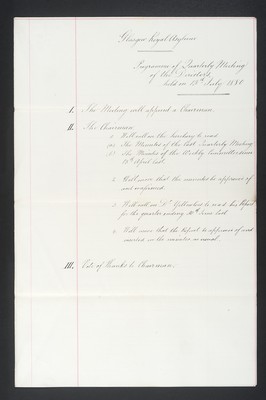 Glasgow Royal Asylum
Programme of Quarterly Meeting
of the Directors
held on 13th July 1880.
I. The Meeting will appoint a Chairman.
II. The Chairman
1. Will call on the Secretary to read
(a) The Minutes of the last Quarterly Meeting
(b) The Minutes of the Weekly Committees since
13th April last.
2. Will move that the minutes be approven of
and confirmed.
3. Will call on Dr Yellowlees to read his Report
for the quarter ending 30th June last
4. Will move that the Report be approven of and
inserted in the minutes as usual.
III. Vote of Thanks to Chairman.